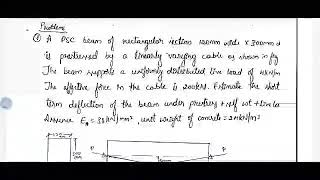 Problem
① A PSC beam of rectangular section 120mm wide x 300mm d
is prestressed by a linearly varying cable as shown in fig
The beam supports a uniformly distributed live load of 4kN/m
The effective force in the cable is 200kN. Estimate the short
term deflection of the beam under prestress + self wt + live lo
Assume E = 38kN/mm², unit weight of concrete = 24kN/m³
P
P